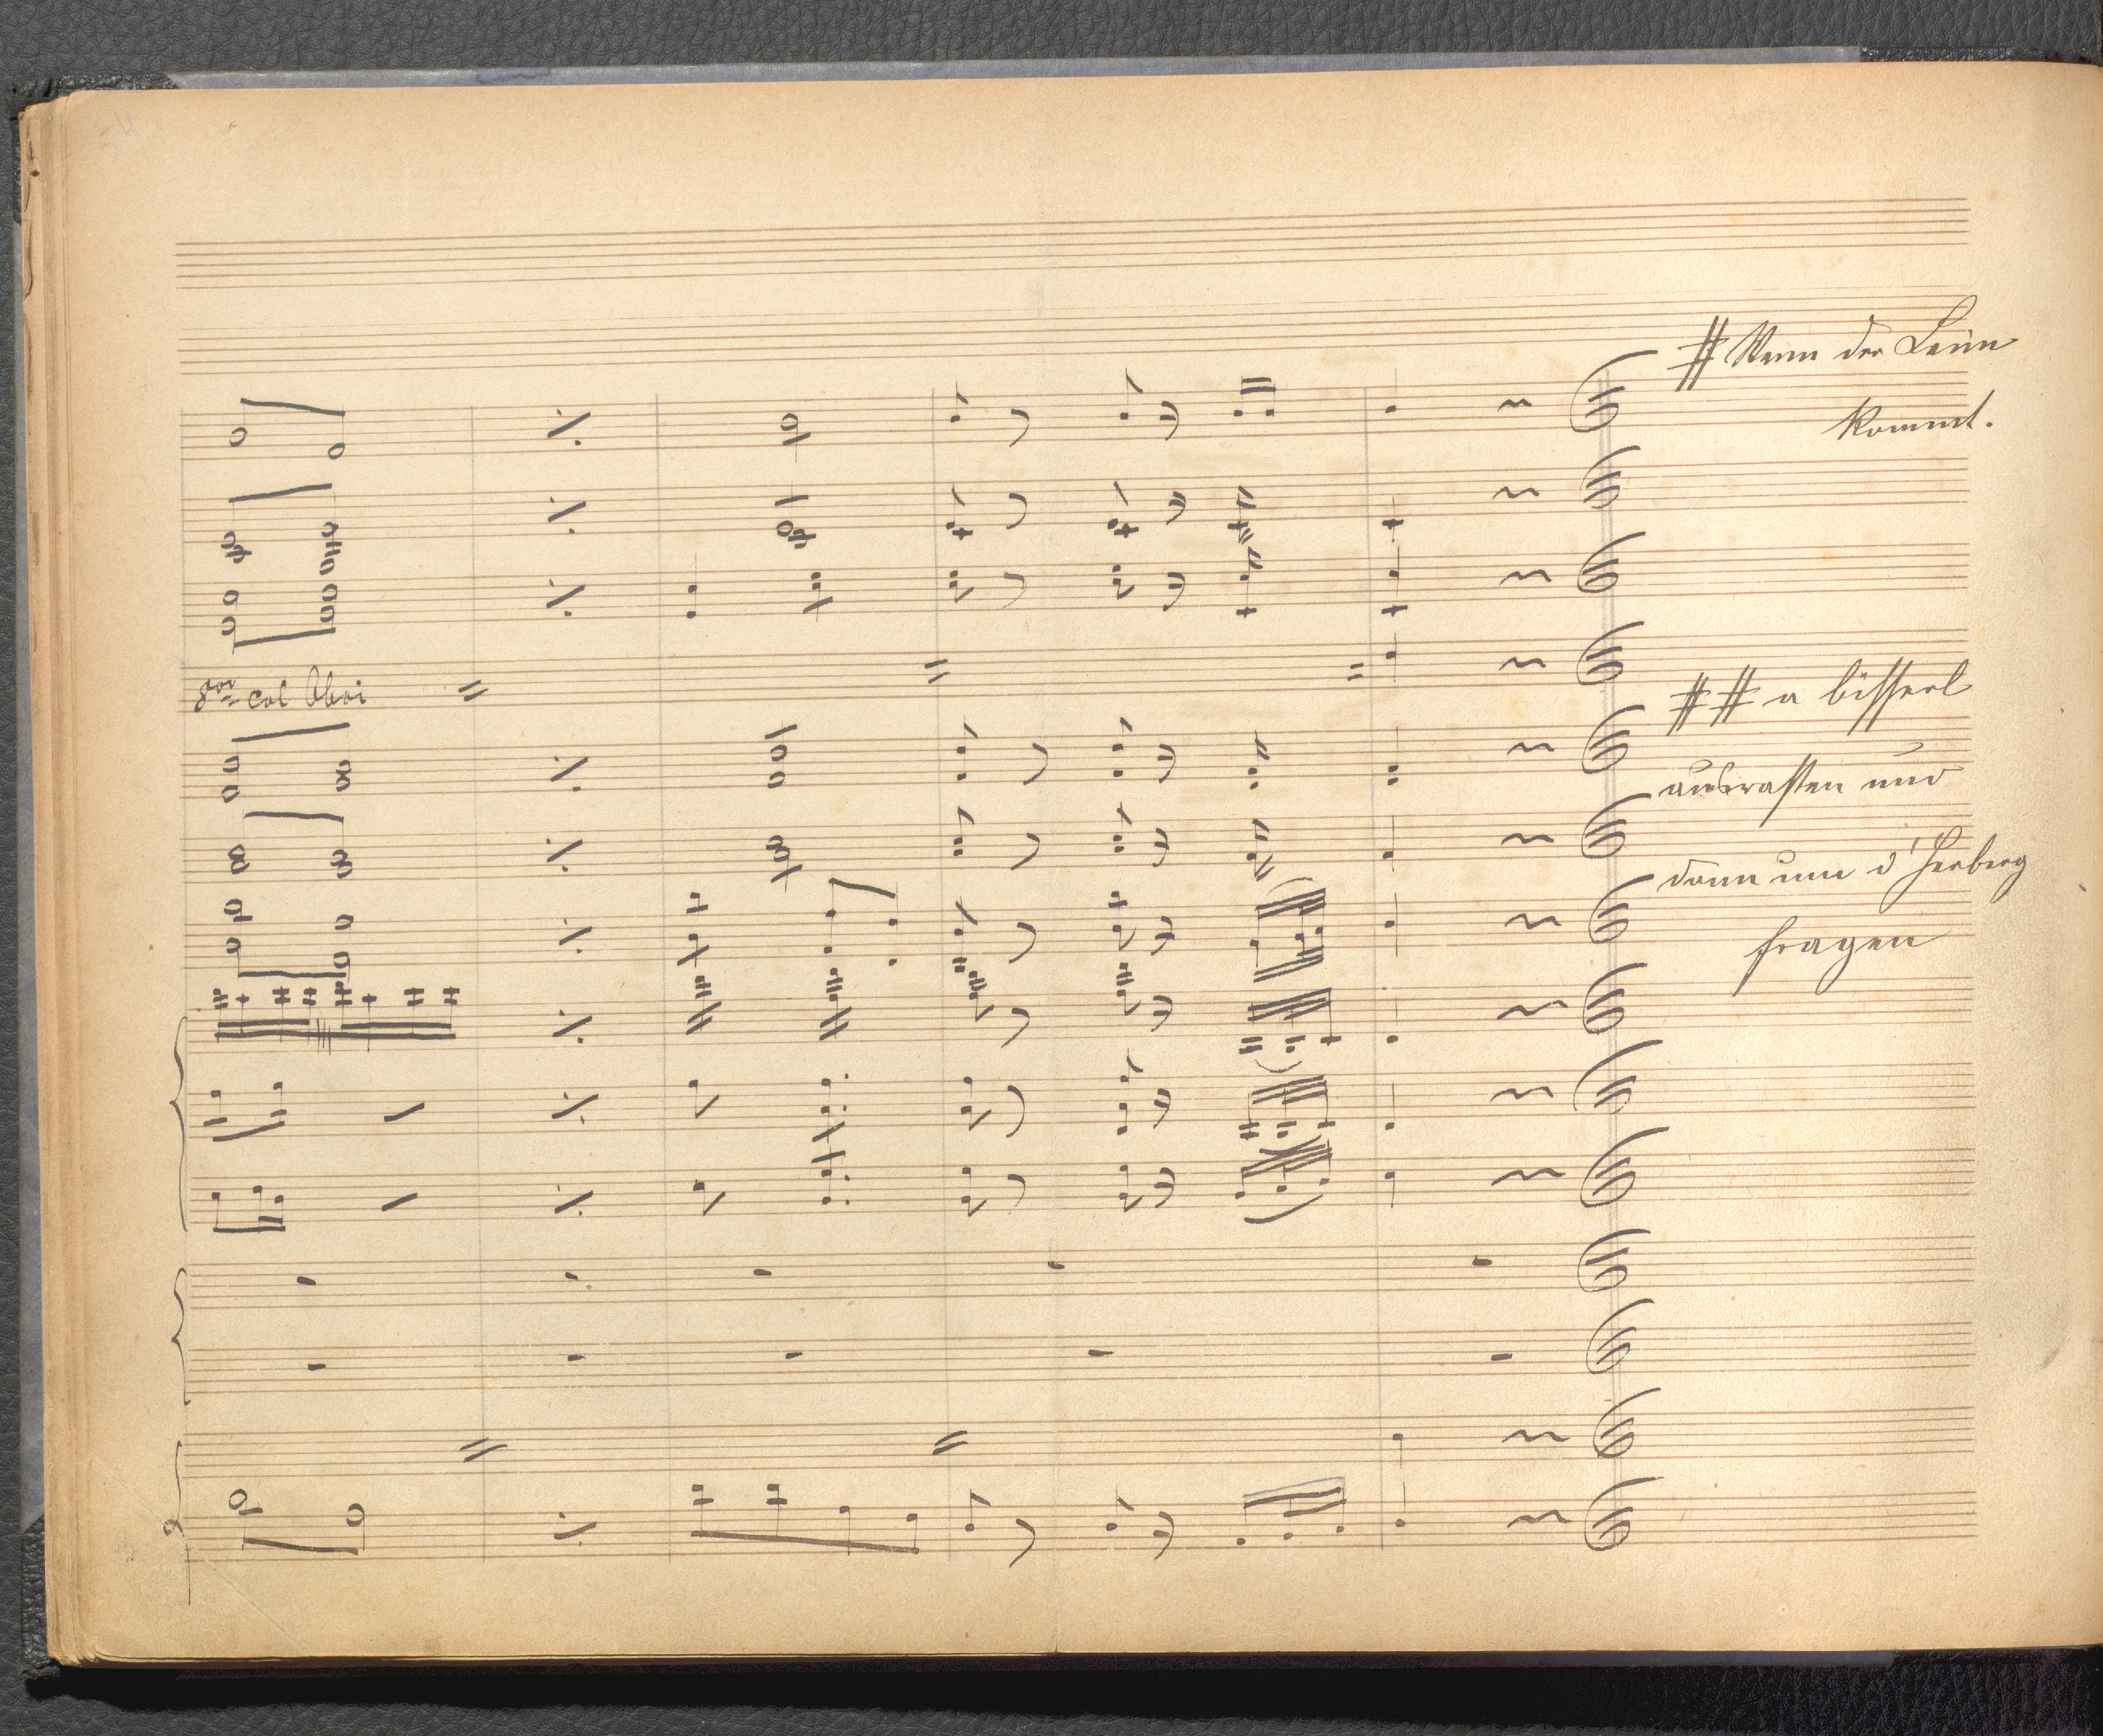 # Wenn der Leim
kommt.
8va col Oboi
## a bisserl
ausrasten und
dann um d'Herberg
fragen